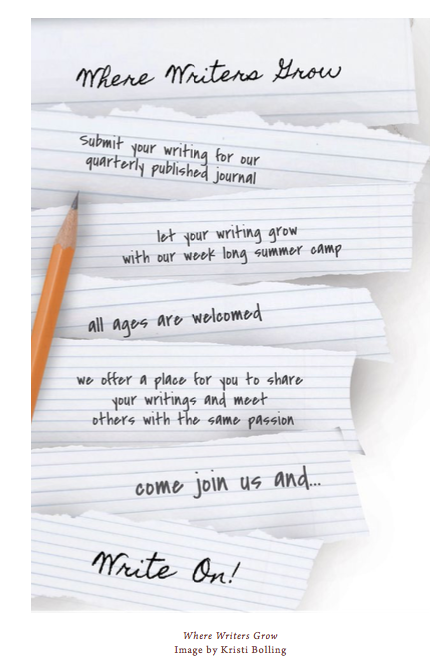 Where Writers Grow
Submit your writing for our
quarterly published journal
let your writing grow
with our week long summer camp
all ages are welcomed
we offer a place for you to share
your writings and meet
others with the same passion
come join us and...
Write On!
Where Writers Grow
Image by Kristi Bolling